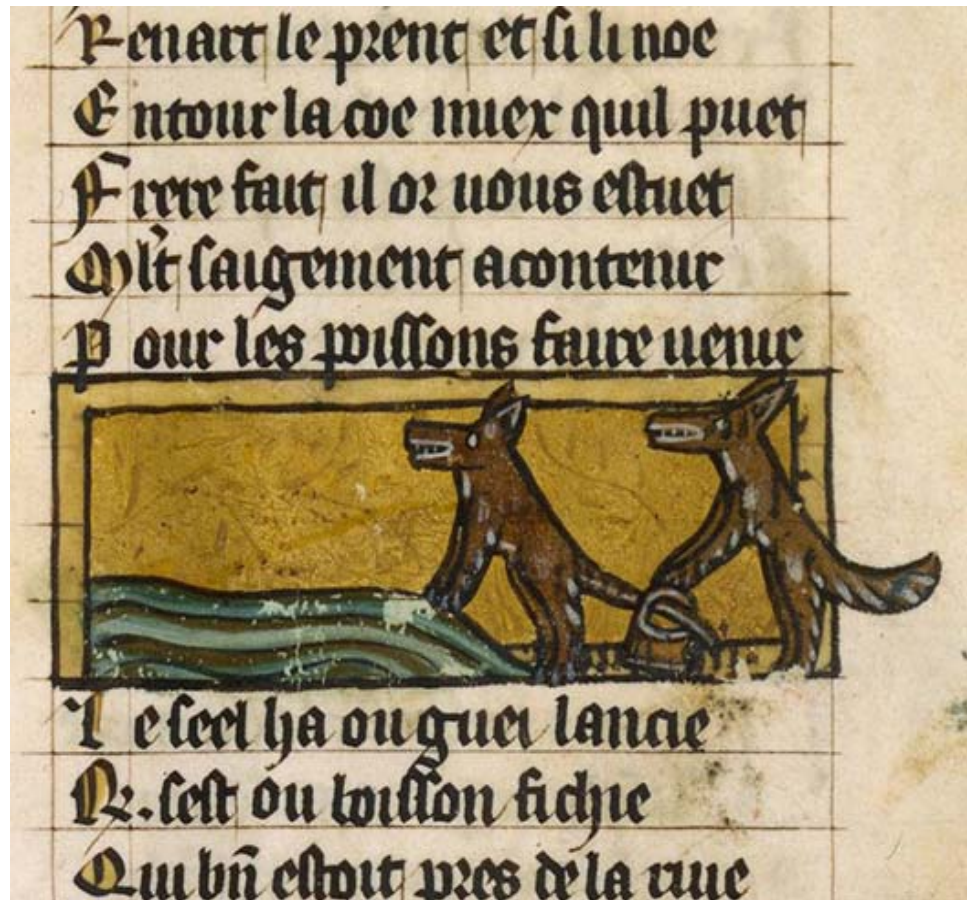 Renart le prent et si li noe
Entour la coe miex quil puet
Frere fait il or uous estuet
Mlt saigement acontenir
Pour les poissons faire uenir
Le seel ha ou guei lancie
R. sest ou boisson fichie
Qui bn̄ estoit pres de la riue